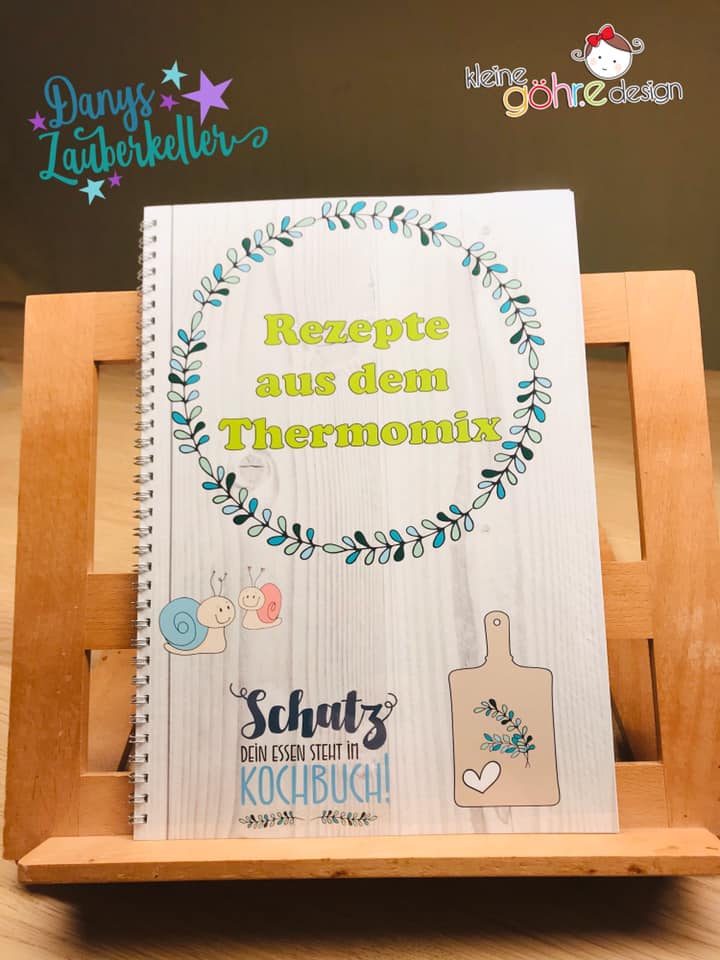 Danys
Zauberkeller
kleine
göhr.e design
Rezepte
aus dem
Thermomix
Schatz
DEIN ESSEN STEHT IM
KOCHBUCH!